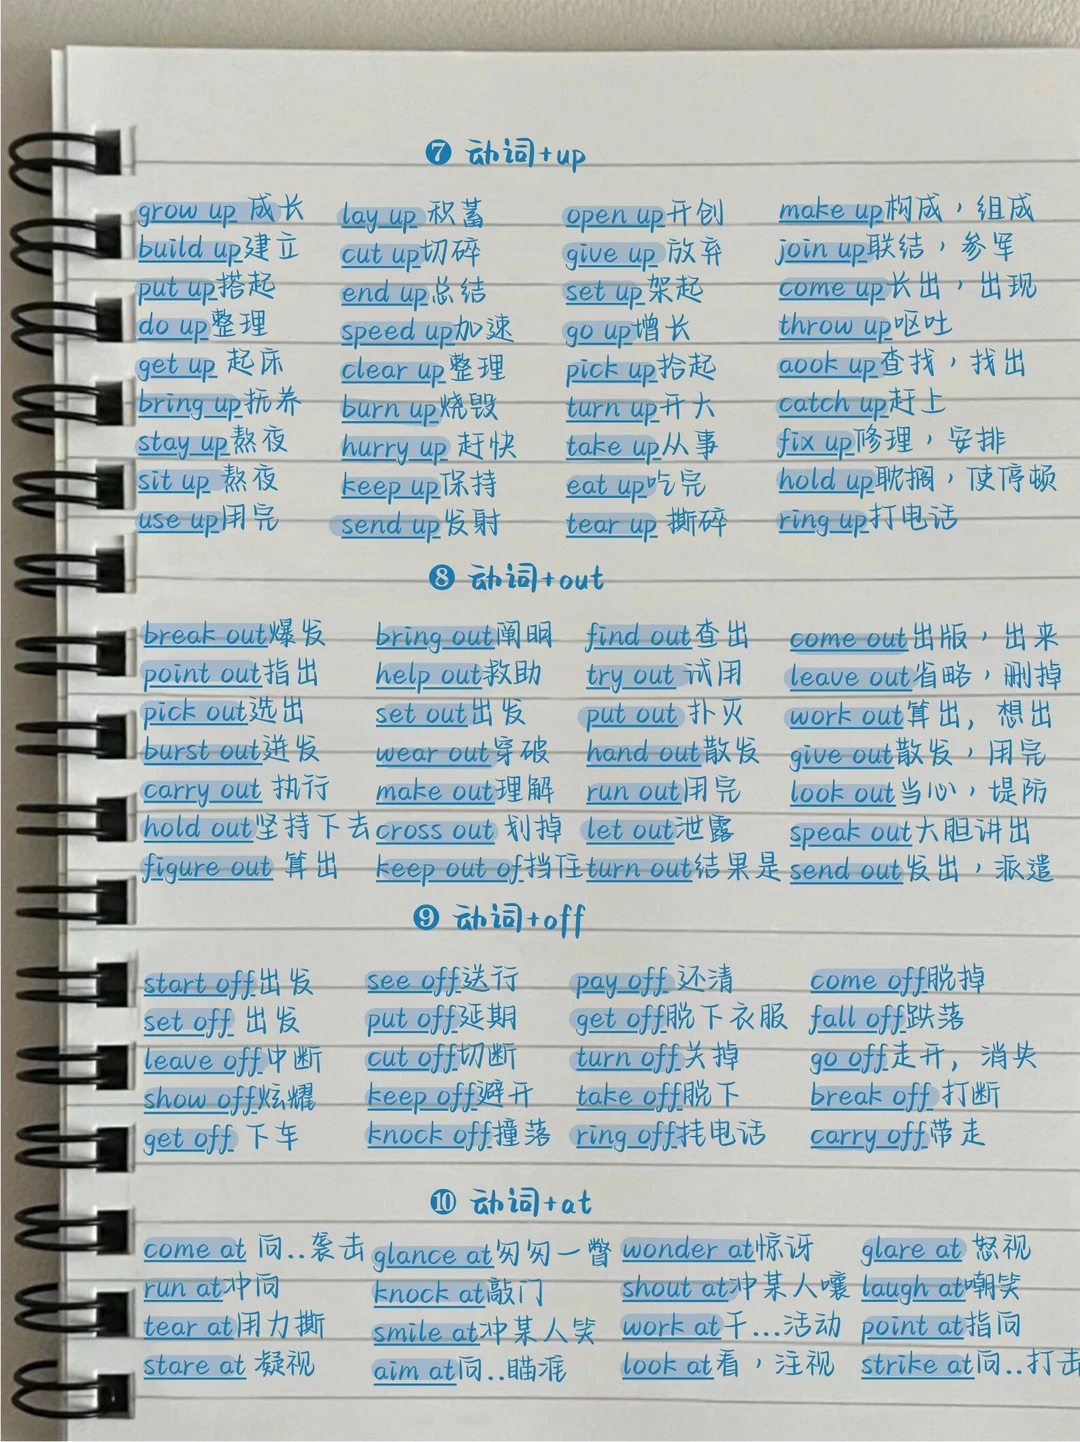 ❼ 动词+up
grow up 成长 lay up 积蓄 open up 开创 make up 构成，组成
build up 建立 cut up 切碎 give up 放弃 join up 联结，参军
put up 搭起 end up 总结 set up 架起 come up 长出，出现
do up 整理 speed up 加速 go up 增长 throw up 呕吐
get up 起床 clear up 整理 pick up 拾起 aook up 查找，找出
bring up 抚养 burn up 烧毁 turn up 开大 catch up 赶上
stay up 熬夜 hurry up 赶快 take up 从事 fix up 修理，安排
sit up 熬夜 keep up 保持 eat up 吃完 hold up 耽搁，使停顿
use up 用完 send up 发射 tear up 撕碎 ring up 打电话
❽ 动词+out
break out 爆发 bring out 阐明 find out 查出 come out 出版，出来
point out 指出 help out 救助 try out 试用 leave out 省略，删掉
pick out 选出 set out 出发 put out 扑灭 work out 算出, 想出
burst out 迸发 wear out 穿破 hand out 散发 give out 散发，用完
carry out 执行 make out 理解 run out 用完 look out 当心，堤防
hold out 坚持下去 cross out 划掉 let out 泄露 speak out 大胆讲出
figure out 算出 keep out of 挡住 turn out 结果是 send out 发出，派遣
❾ 动词+off
start off 出发 see off 送行 pay off 还清 come off 脱掉
set off 出发 put off 延期 get off 脱下衣服 fall off 跌落
leave off 中断 cut off 切断 turn off 关掉 go off 走开, 消失
show off 炫耀 keep off 避开 take off 脱下 break off 打断
get off 下车 knock off 撞落 ring off 挂电话 carry off 带走
❿ 动词+at
come at 向..袭击 glance at 匆匆一瞥 wonder at 惊讶 glare at 怒视
run at 冲向 knock at 敲门 shout at 冲某人嚷 laugh at 嘲笑
tear at 用力撕 smile at 冲某人笑 work at 干...活动 point at 指向
stare at 凝视 aim at 向..瞄准 look at 看，注视 strike at 向..打击